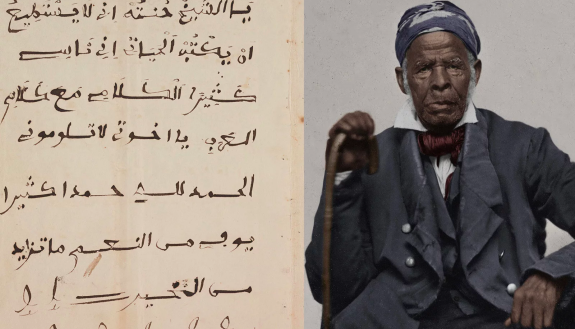 يا الشيخ حنته اني لا يستطيع
ان يكتب الحياتي اني ناسي
كثيرا الكلامي مع كلام
العربي يا اخوتي لا تلوموني
الحمد لله حمدا كثيرا
يوفي من النعيم ما تزايد
من الخير